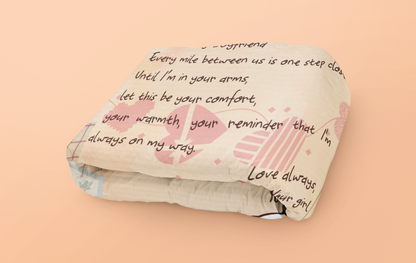 boyfriend
Every mile between us is one step
Until I'm in your arms,
let this be your comfort,
your warmth, your reminder that I'm
always on my way.
Love always,
Your girl